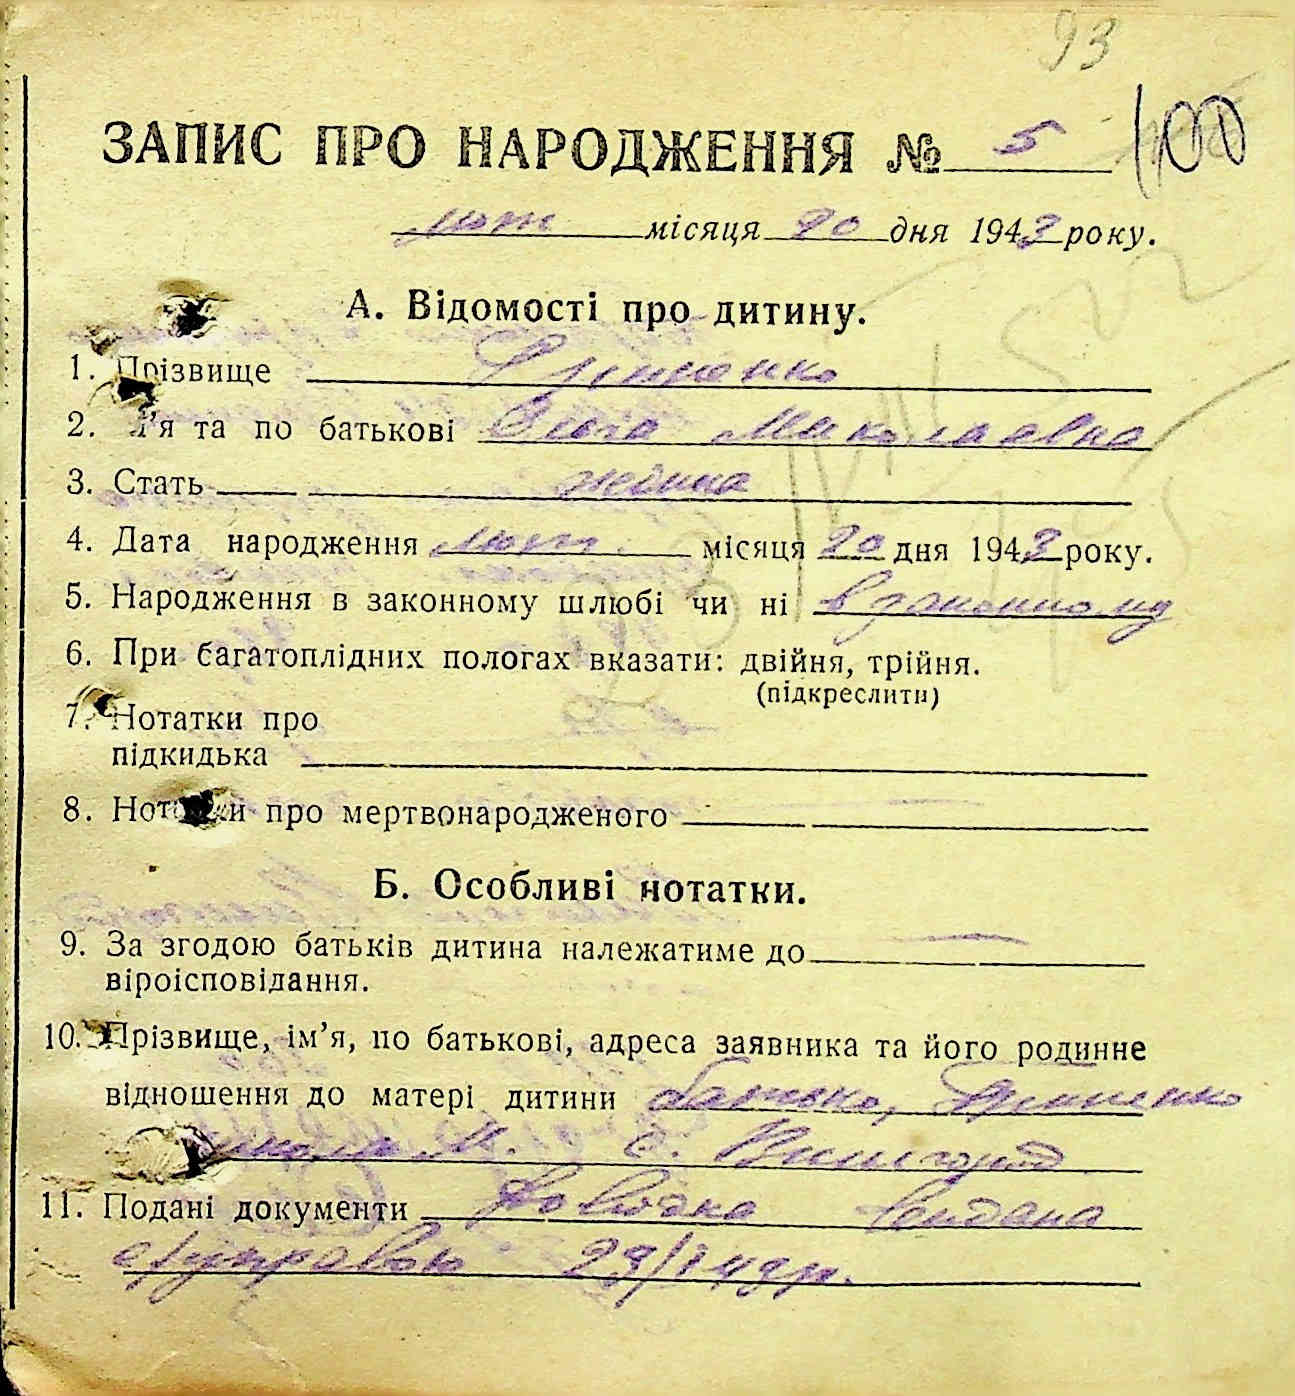 93
ЗАПИС ПРО НАРОДЖЕННЯ № 5 100
лют місяця 20 дня 1943 року.
А. Відомості про дитину.
1. Прізвище
2. м'я та по батькові Ольга Миколаевна
3. Стать жіноча
4. Дата народження лют. місяця 20 дня 1943 року.
5. Народження в законному шлюбі чи ні в законному
6. При багатоплідних пологах вказати: двійня, трійня.
(підкреслити)
7. Нотатки про
підкидька
8. Нотатки про мертвонародженого
Б. Особливі нотатки.
9. За згодою батьків дитина належатиме до
віроісповідання.
10. Прізвище, ім'я, по батькові, адреса заявника та його родинне
відношення до матері дитини батько,
М. с. Вишгород
11. Подані документи Довідка видана
с/управою